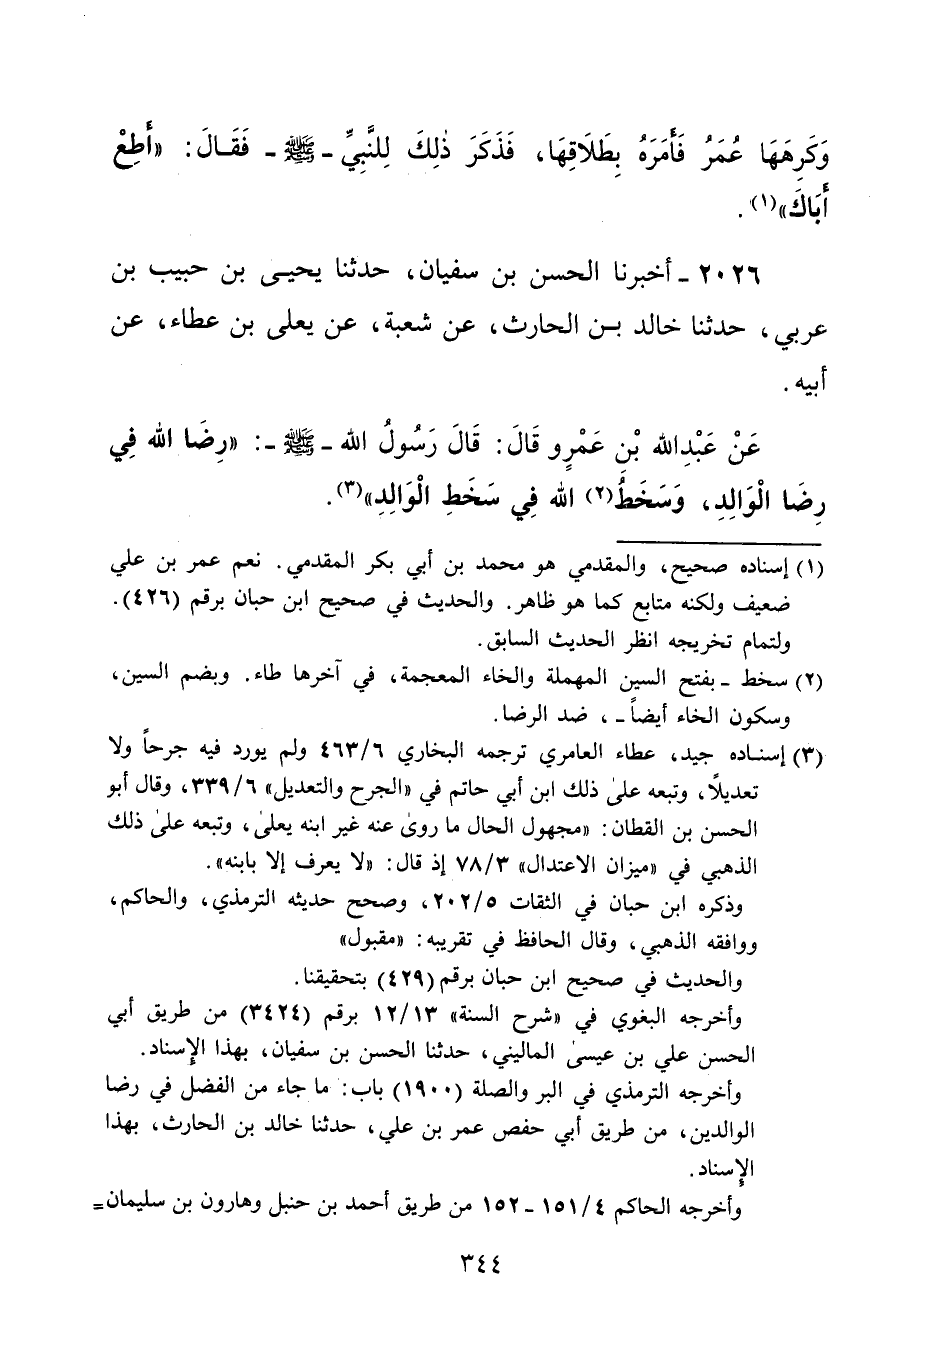 وَكَرِهَهَا عُمَرُ فَأَمَرَهُ بِطَلَاقِهَا، فَذَكَرَ ذٰلِكَ لِلنَّبِيِّ ـ ﷺ ـ فَقَالَ: «أَطِعْ
أَبَاكَ»(١).
٢٠٢٦ ـ أخبرنا الحسن بن سفيان، حدثنا يحيى بن حبيب بن
عربي، حدثنا خالد بن الحارث، عن شعبة، عن يعلى بن عطاء، عن
أبيه.
عَنْ عَبْدِالله بْنِ عَمْرٍو قَالَ: قَالَ رَسُولُ الله ـ ﷺ ـ: «رِضَا الله فِي
رِضَا الْوَالِدِ، وَسَخَطُ(٢) الله فِي سَخَطِ الْوَالِدِ»(٣).
(١) إسناده صحيح، والمقدمي هو محمد بن أبي بكر المقدمي. نعم عمر بن علي
ضعيف ولكنه متابع كما هو ظاهر. والحديث في صحيح ابن حبان برقم (٤٢٦).
ولتمام تخريجه انظر الحديث السابق.
(٢) سخط ـ بفتح السين المهملة والخاء المعجمة، في آخرها طاء. وبضم السين،
وسكون الخاء أيضاً ـ، ضد الرضا.
(٣) إسناده جيد، عطاء العامري ترجمه البخاري ٤٦٣/٦ ولم يورد فيه جرحاً ولا
تعديلاً، وتبعه علىٰ ذلك ابن أبي حاتم في «الجرح والتعديل» ٣٣٩/٦، وقال أبو
الحسن بن القطان: «مجهول الحال ما روىٰ عنه غير ابنه يعلىٰ، وتبعه علىٰ ذلك
الذهبي في «ميزان الاعتدال» ٧٨/٣ إذ قال: «لا يعرف إلا بابنه».
وذكره ابن حبان في الثقات ٢٠٢/٥، وصحح حديثه الترمذي، والحاكم،
ووافقه الذهبي، وقال الحافظ في تقريبه: «مقبول»
والحديث في صحيح ابن حبان برقم (٤٢٩) بتحقيقنا.
وأخرجه البغوي في «شرح السنة» ١٢/١٣ برقم (٣٤٢٤) من طريق أبي
الحسن علي بن عيسىٰ الماليني، حدثنا الحسن بن سفيان، بهذا الإسناد.
وأخرجه الترمذي في البر والصلة (١٩٠٠) باب: ما جاء من الفضل في رضا
الوالدين، من طريق أبي حفص عمر بن علي، حدثنا خالد بن الحارث، بهذا
الإسناد.
وأخرجه الحاكم ١٥١/٤ ـ ١٥٢ من طريق أحمد بن حنبل وهارون بن سليمان=
٣٤٤